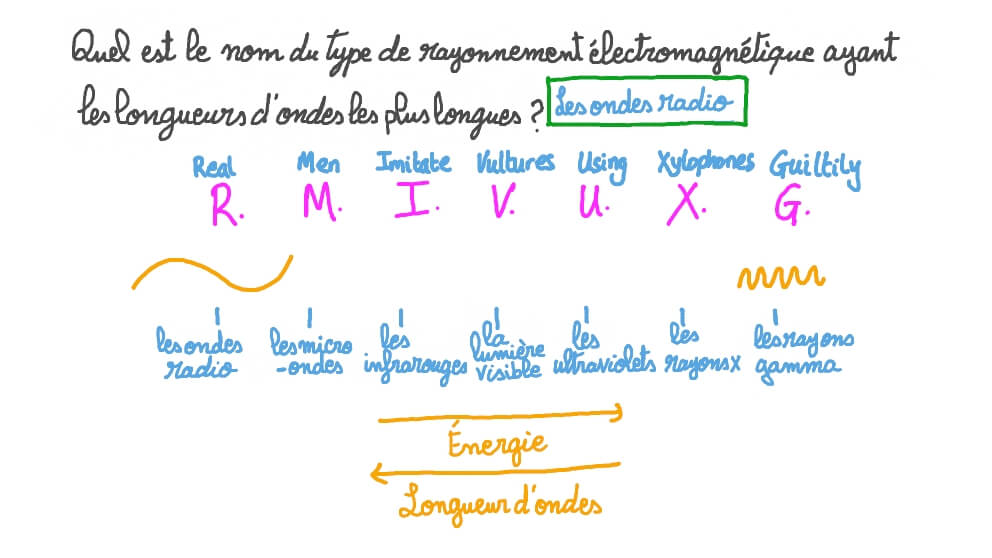 Quel est le nom du type de rayonnement électromagnétique ayant
les longueurs d'ondes les plus longues ? Les ondes radio
Real Men Imitate Vultures Using Xylophones Guiltily
R. M. I. V. U. X. G.
les ondes radio
les micro-ondes
les infrarouges
la lumière visible
les ultraviolets
les rayons x
les rayons gamma
Énergie
Longueur d'ondes